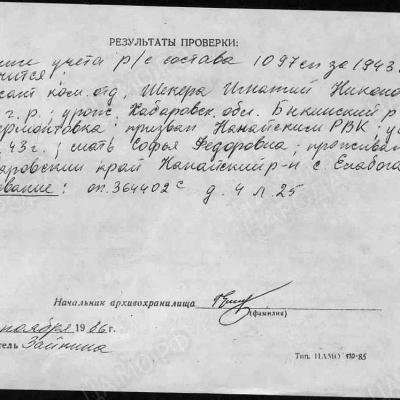 РЕЗУЛЬТАТЫ ПРОВЕРКИ:
учета р/с состава 1097 сп за 1943
чится:
ком. отд. Шекера Игнатий Никоно
г.р., урож. Хабаровск. обл. Бикинский р
рмонтовка, призван Нанайским РВК,
43 г.; мать Софья Федоровна; проживал
аровский край Нанайский р-н с. Елабога
ование: оп. 364402с д. 4 л. 25
Начальник архивохранилища
(фамилия)
ноября 1986 г.
тель Зайкина
Тип. ЦАМО 110-85
ЦАМО.РФ